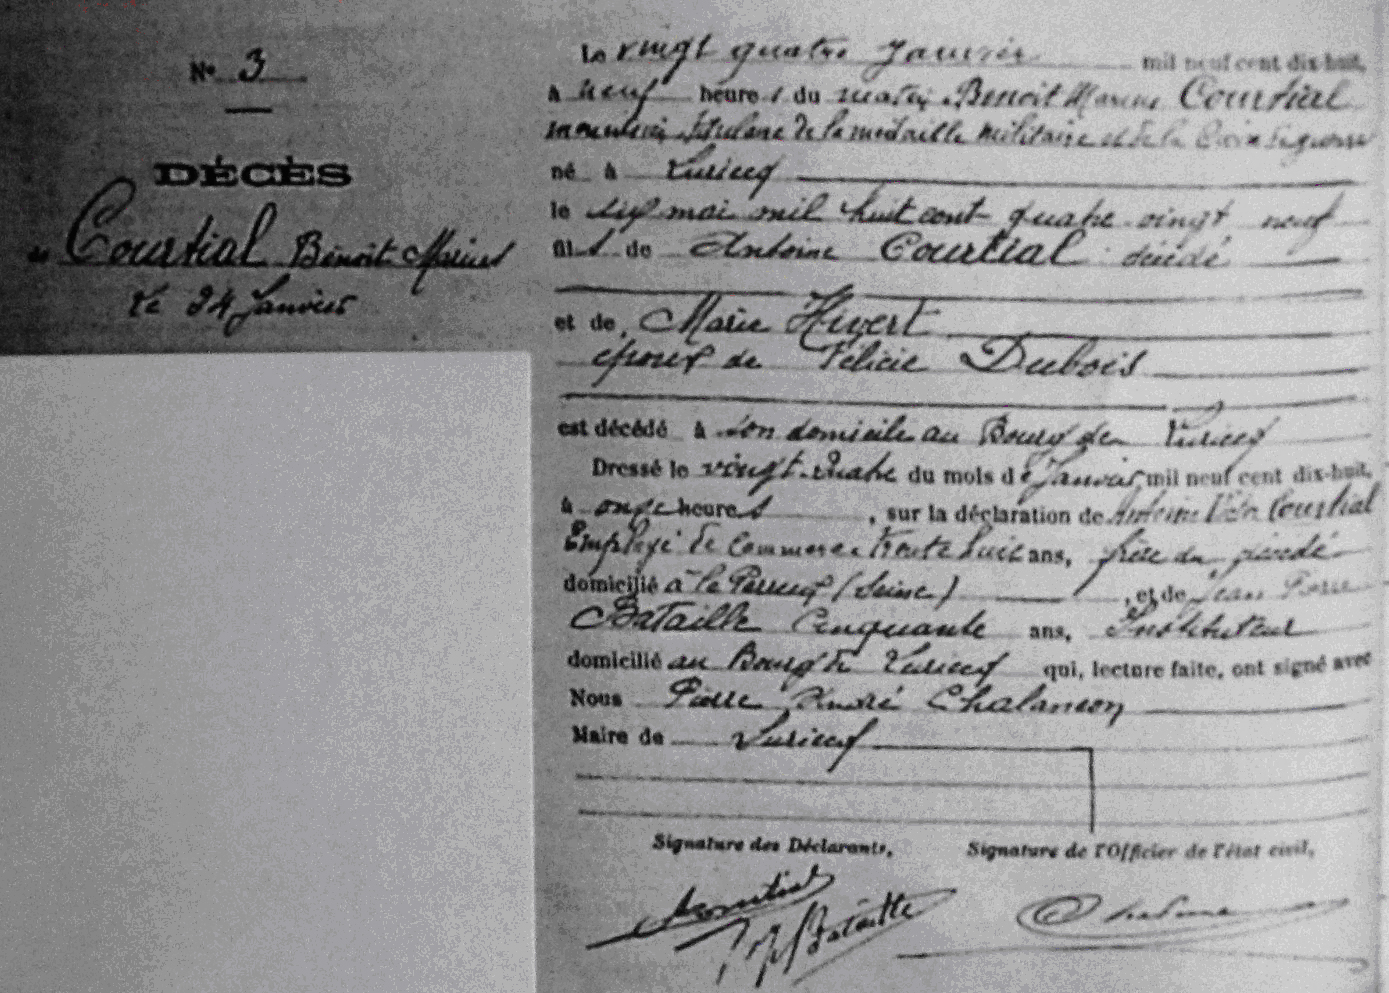 N° 3
DÉCÈS
de Courtial Benoit Marius
Le 24 Janvier
Le vingt quatre Janvier mil neuf cent dix-huit,
à neuf heures du matin Benoit Marius Courtial
titulaire de la medaille militaire et de la Croix de guerre
né à Luriecq
le six mai mil huit cent quatre vingt neuf
fils de Antoine Courtial décédé
et de Marie Hivert
époux de Félicie Dubois
est décédé à son domicile au Bourg de Luriecq
Dressé le vingt-quatre du mois de Janvier mil neuf cent dix-huit,
à onze heures, sur la déclaration de Antoine Courtial
Employé de Commerce trente huit ans, frère du décédé
domicilié à le Perreux (Seine), et de Jean Pierre
Bataille Cinquante ans, Instituteur
domicilié au Bourg de Luriecq qui, lecture faite, ont signé avec
Nous Pierre André Chalancon
Maire de Luriecq
Signature des Déclarants, Signature de l'Officier de l'état civil,
Courtial
Bataille